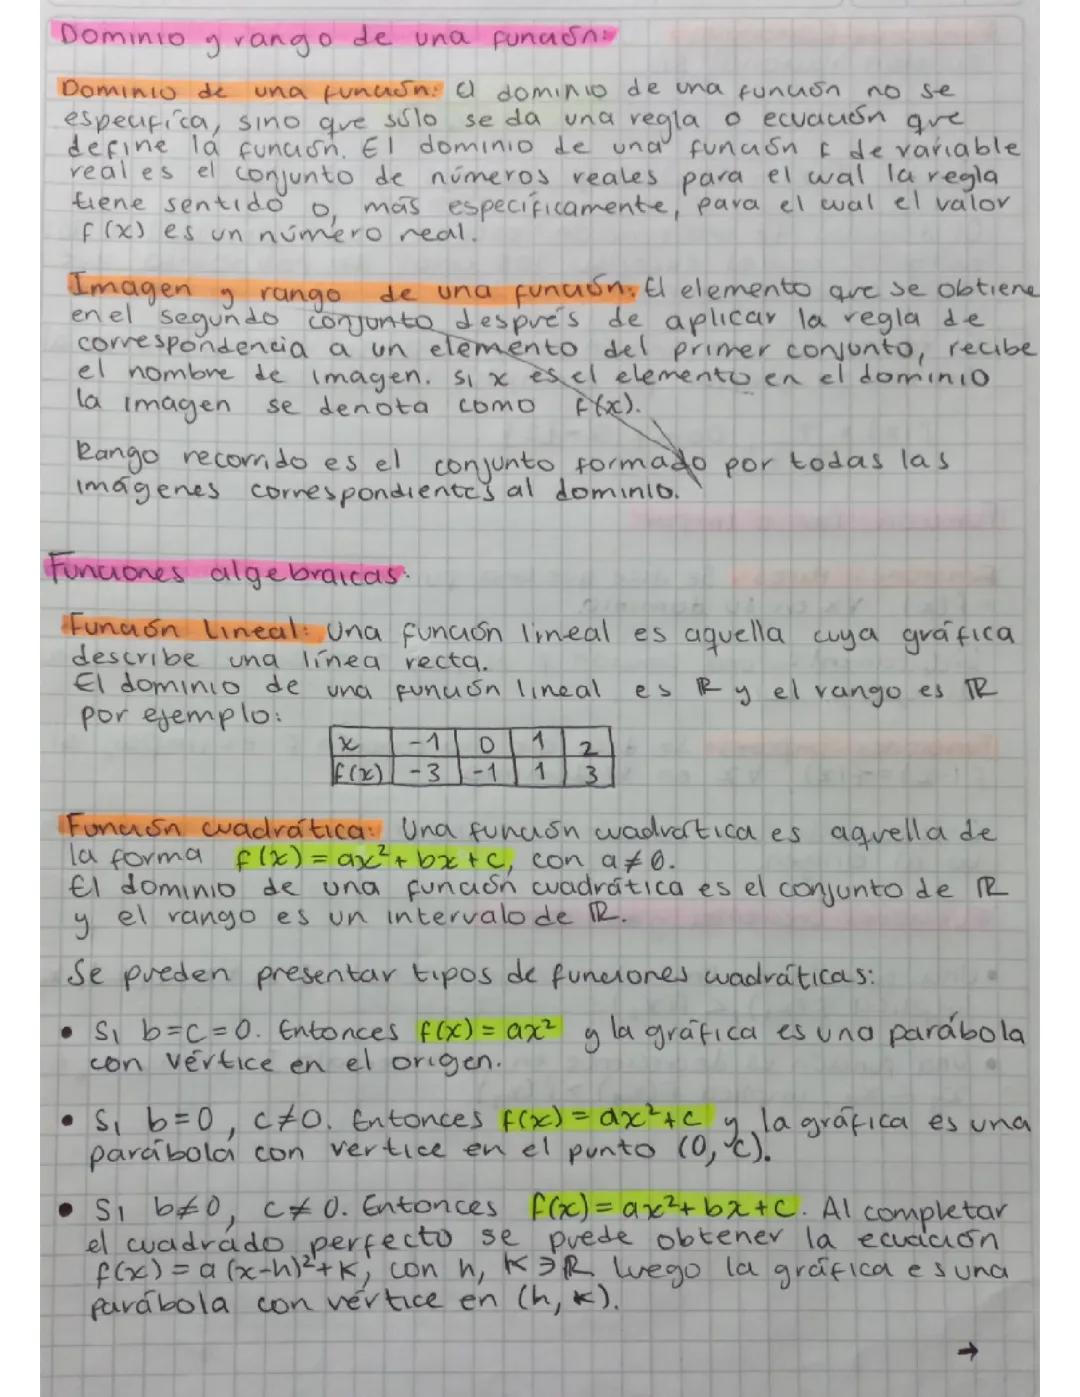 Dominio y rango de una función:
Dominio de una función: El dominio de una función no se
especifica, sino que sólo se da una regla o ecuación que
define la función. El dominio de una función f de variable
real es el conjunto de números reales para el cual la regla
tiene sentido o, más específicamente, para el cual el valor
f(x) es un número real.
Imagen y rango de una función: El elemento que se obtiene
en el segundo conjunto después de aplicar la regla de
correspondencia a un elemento del primer conjunto, recibe
el nombre de imagen. Si x es el elemento en el dominio
la imagen se denota como f(x).
Rango recorrido es el conjunto formado por todas las
imágenes correspondientes al dominio.
Funciones algebraicas:
Función Lineal: Una función lineal es aquella cuya gráfica
describe una línea recta.
El dominio de una función lineal es ℝ y el rango es ℝ
por ejemplo:
x -1 0 1 2
f(x) -3 -1 1 3
Función cuadrática: Una función cuadrática es aquella de
la forma f(x) = ax²+bx+c, con a≠0.
El dominio de una función cuadrática es el conjunto de ℝ
y el rango es un intervalo de ℝ.
Se pueden presentar tipos de funciones cuadráticas:
• Si b=c=0. Entonces f(x) = ax² y la gráfica es una parábola
con vértice en el origen.
• Si b=0, c≠0. Entonces f(x) = ax²+c y la gráfica es una
parábola con vertice en el punto (0, c).
• Si b≠0, c≠0. Entonces f(x) = ax²+bx+c. Al completar
el cuadrado perfecto se puede obtener la ecuación
f(x) = a(x-h)²+K, con h, K∋ℝ luego la gráfica es una
parábola con vértice en (h, k).
→